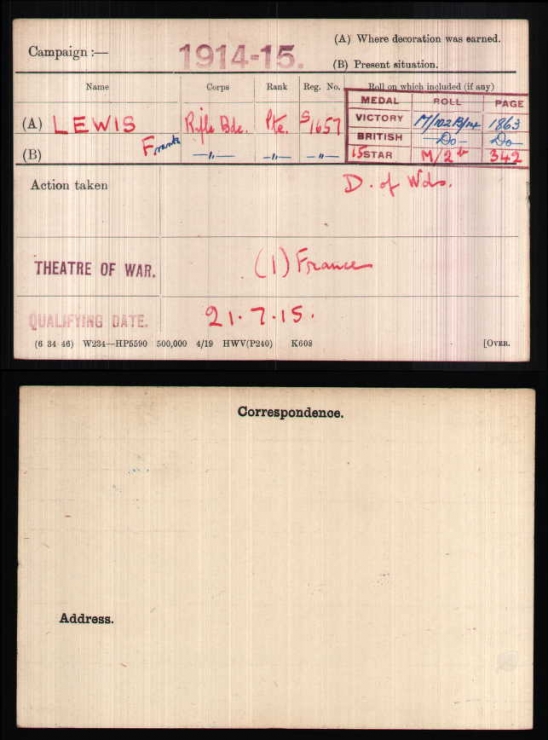 Campaign :— 1914-15. (A) Where decoration was earned.
(B) Present situation.
Name Corps Rank Reg. No. Roll on which included (if any)
MEDAL ROLL PAGE
(A) LEWIS Rifle Bde. Pte. S/1657 VICTORY 1863
(B) Frank —„— —„— —„— BRITISH —Do— —Do—
15 STAR M/2 342
Action taken D. of Wds.
THEATRE OF WAR. (1) France
QUALIFYING DATE. 21.7.15.
(6 34 46) W234—HP5590 500,000 4/19 HWV(P240) K608 [OVER.
Correspondence.
Address.